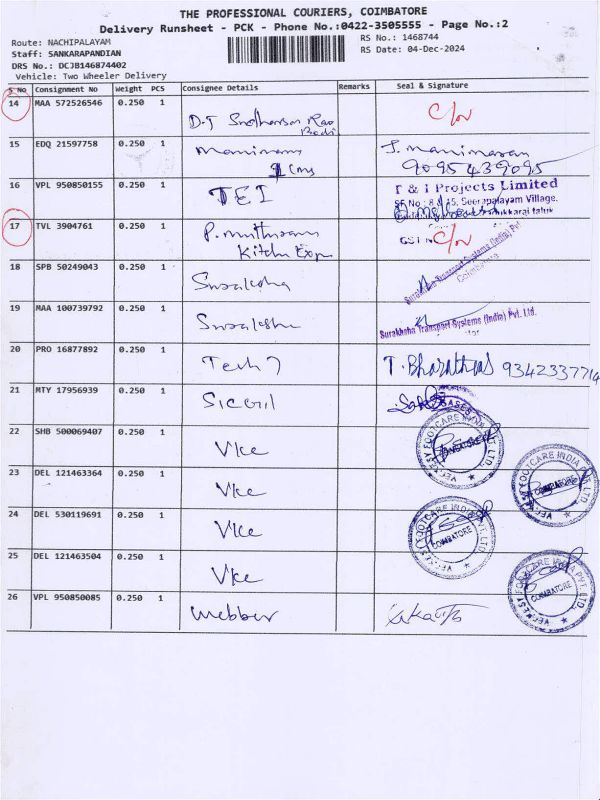 THE PROFESSIONAL COURIERS, COIMBATORE
Delivery Runsheet - PCK - Phone No.:0422-3505555 - Page No.:2
Route: NACHIPALAYAM
RS No.: 1468744
Staff: SANKARAPANDIAN
RS Date: 04-Dec-2024
DRS No.: DCJB146874402
Vehicle: Two Wheeler Delivery
S No Consignment No Weight PCS Consignee Details Remarks Seal & Signature
14 MAA 572526546 0.250 1
D.J
15 EDQ 21597758 0.250 1 J. Manimaran
9095439095
16 VPL 950850155 0.250 1 TEI
T & I Projects Limited
SF No : 8 & 15, Seerapalayam Village,
17 TVL 3904761 0.250 1 P.
Kitchen
GST
18 SPB 50249043 0.250 1
Surakhsha Transport Systems (India) Pvt
Coimbatore
19 MAA 100739792 0.250 1
Surakhsha Transport Systems (India) Pvt. Ltd.
20 PRO 16877892 0.250 1 Tech 7 T. Bharathidas 9342337714
21 MTY 17956939 0.250 1 Sicgil
GASES
22 SHB 500069407 0.250 1 Vkc
VECKESY FOOTCARE INDIA PVT. LTD
COIMBATORE
23 DEL 121463364 0.250 1 Vkc
VECKESY FOOTCARE INDIA PVT. LTD
COIMBATORE
24 DEL 530119691 0.250 1 Vkc
VECKESY FOOTCARE INDIA PVT. LTD
COIMBATORE
25 DEL 121463504 0.250 1 Vkc
VECKESY FOOTCARE INDIA PVT. LTD
COIMBATORE
26 VPL 950850085 0.250 1 Webber